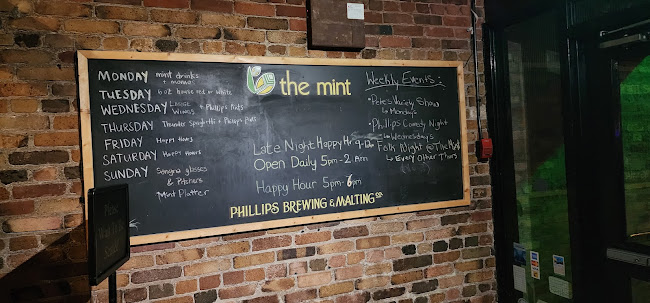 MONDAY mint drinks + momos
TUESDAY 6oz house red or white
WEDNESDAY Large Wings + Phillips Pints
THURSDAY Thunder Spaghetti + Phillips Pints
FRIDAY Happy Hours
SATURDAY Happy Hours
SUNDAY Sangria glasses & Pitchers
Mint Platter
the mint
Late Night Happy Hr
Open Daily 5pm-2am
Happy Hour 5pm-6pm
PHILLIPS BREWING & MALTING CO.
Weekly Events:
Pete's Variety Show
Mondays
Phillips Comedy Night
Wednesday's
Folk Night @ The Mint
Every Other Thurs